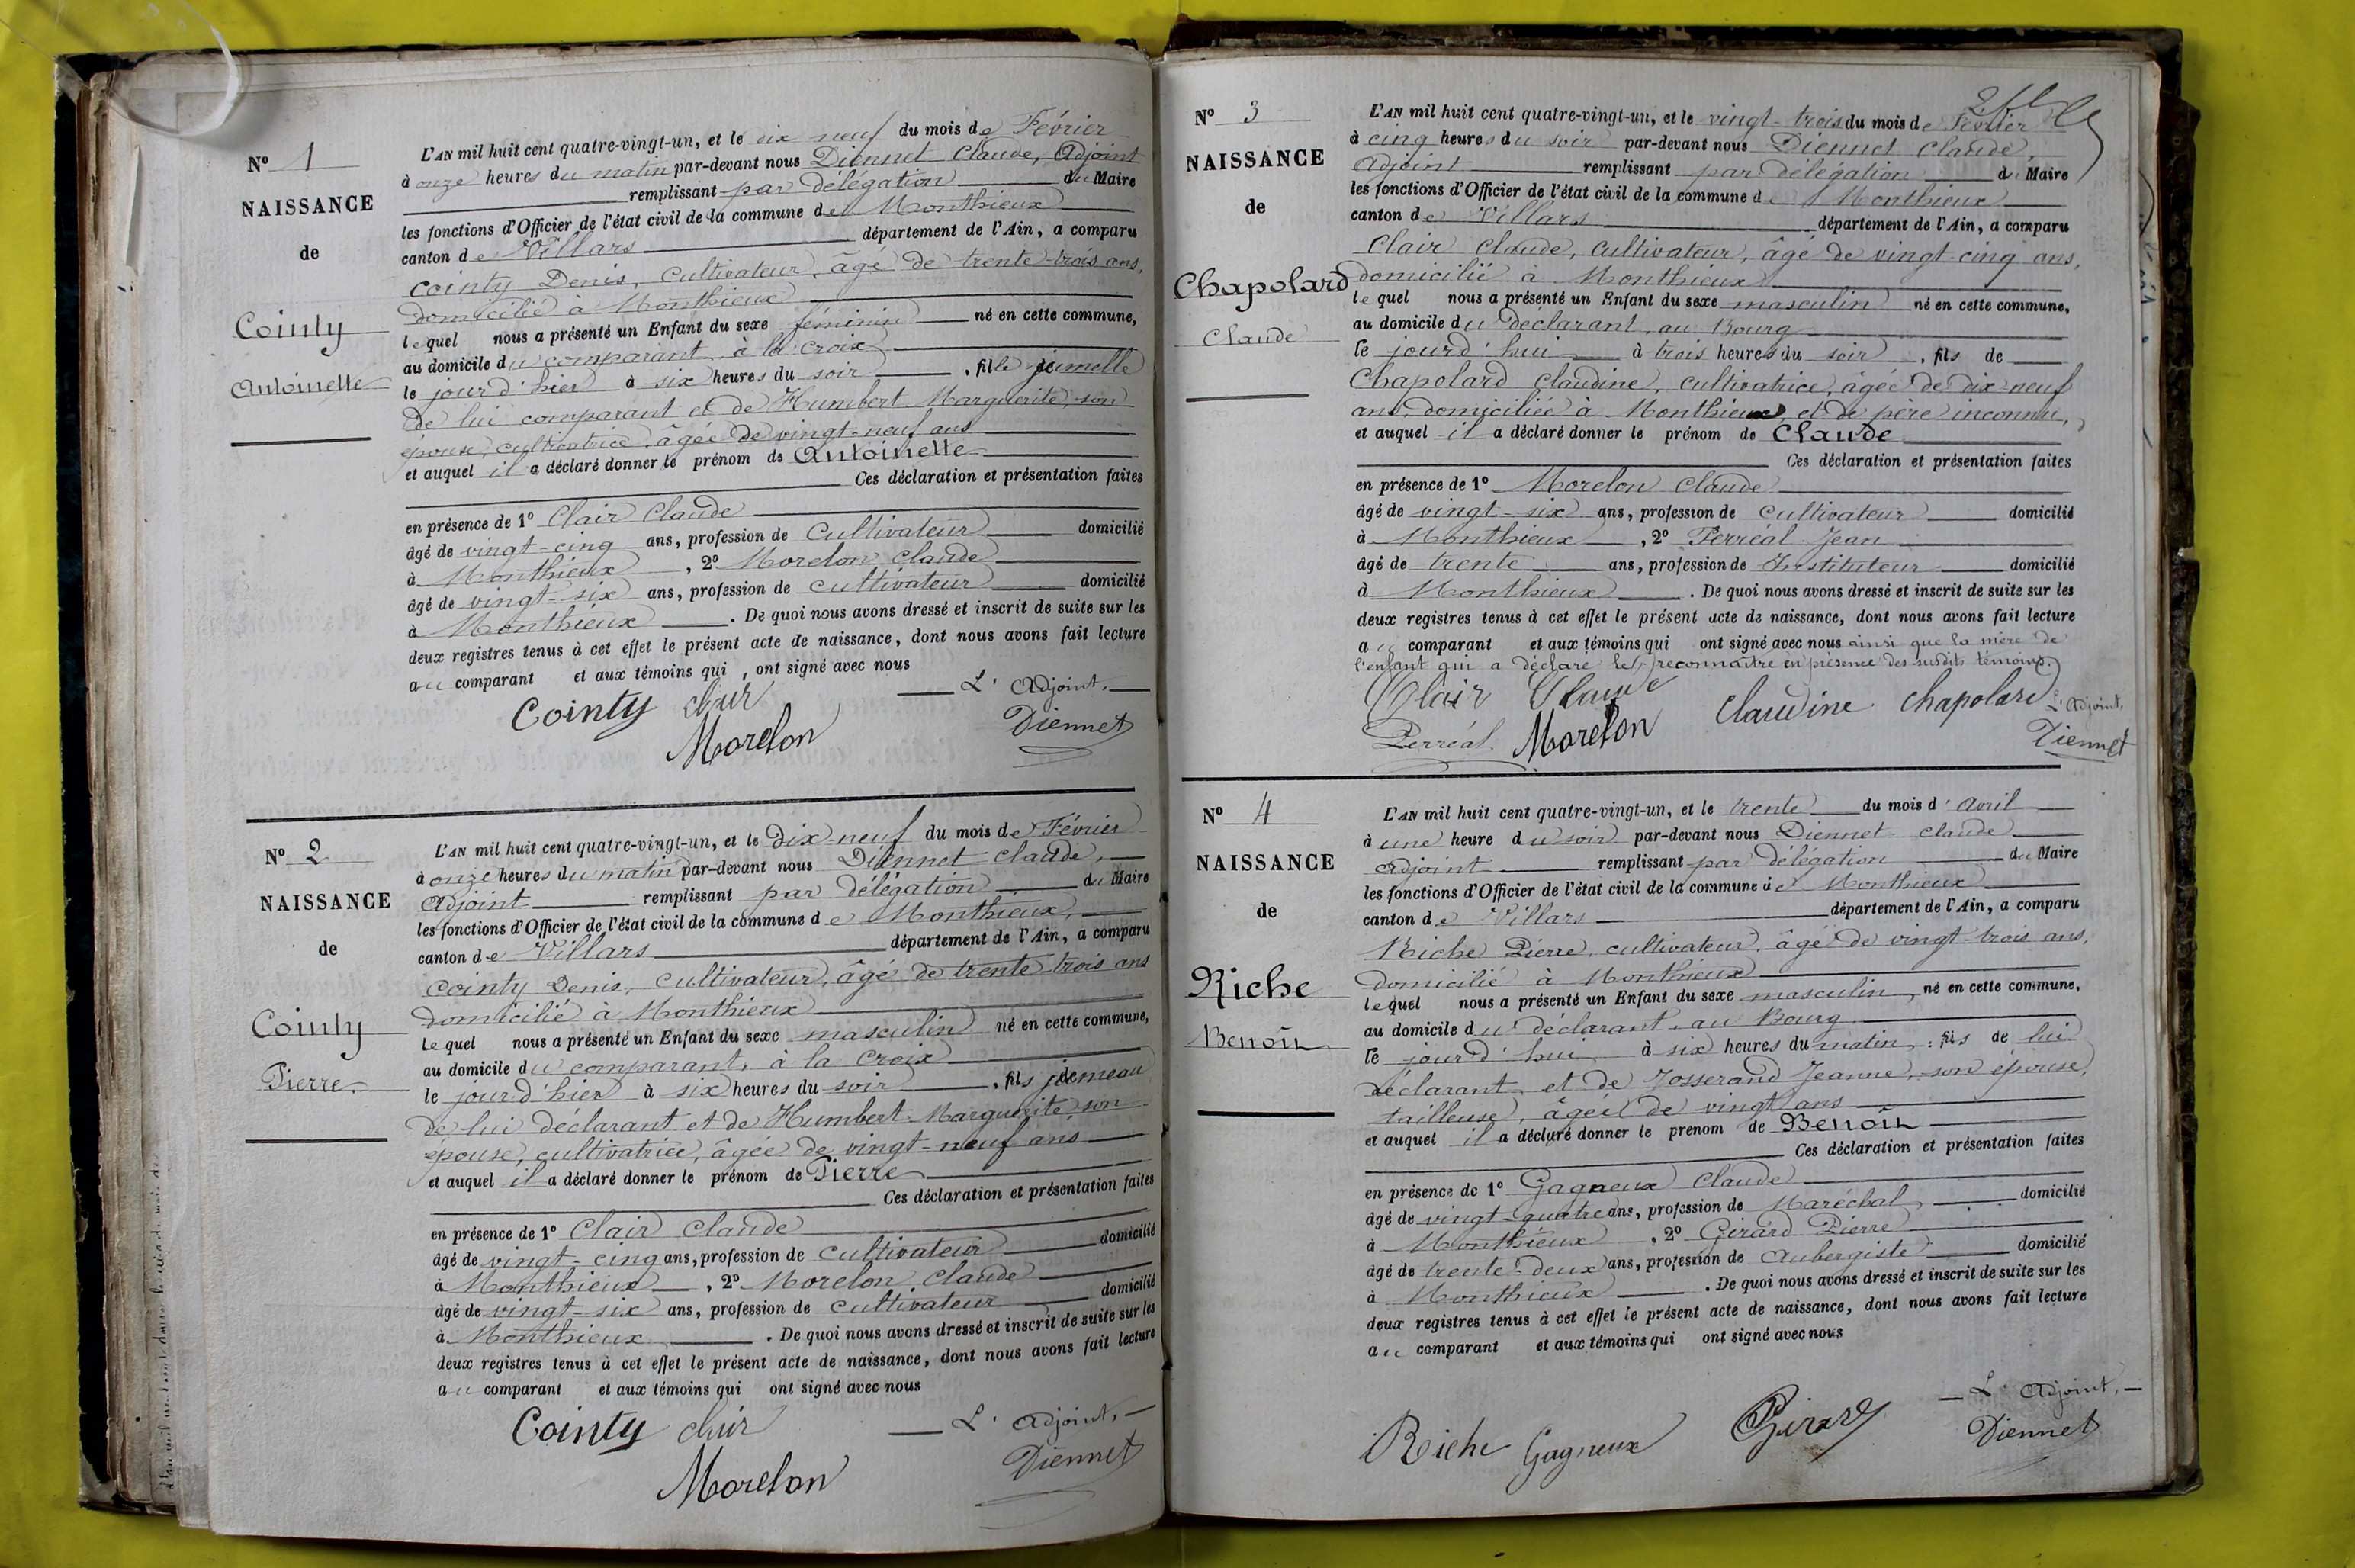 N° 1
NAISSANCE
de
Cointy
Antoinette
L'AN mil huit cent quatre-vingt-un, et le dix neuf du mois de Février
à onze heures du matin par-devant nous Diennet Claude, Adjoint
remplissant par délégation du Maire
les fonctions d'Officier de l'état civil de la commune de Monthieux
canton de Villars département de l'Ain, a comparu
Cointy Denis, Cultivateur, âgé de trente-trois ans,
domicilié à Monthieux
lequel nous a présenté un Enfant du sexe féminin né en cette commune,
au domicile du comparant, à la Croix
le jour d'hier à six heures du soir, fille jumelle
de lui comparant et de Humbert Marguerite, son
épouse, cultivatrice, âgée de vingt-neuf ans
et auquel il a déclaré donner le prénom de Antoinette
Ces déclaration et présentation faites
en présence de 1° Clair Claude
âgé de vingt-cinq ans, profession de Cultivateur domicilié
à Monthieux, 2° Morelon Claude
âgé de vingt-six ans, profession de cultivateur domicilié
à Monthieux. De quoi nous avons dressé et inscrit de suite sur les
deux registres tenus à cet effet le présent acte de naissance, dont nous avons fait lecture
au comparant et aux témoins qui, ont signé avec nous
L'Adjoint,
Cointy Clair
Morelon Diennet
N° 2
NAISSANCE
de
Cointy
Pierre
L'AN mil huit cent quatre-vingt-un, et le Dix neuf du mois de Février
à onze heures du matin par-devant nous Diennet Claude,
Adjoint remplissant par délégation du Maire
les fonctions d'Officier de l'état civil de la commune de Monthieux,
canton de Villars département de l'Ain, a comparu
Cointy Denis, cultivateur, âgé de trente-trois ans
domicilié à Monthieux
Lequel nous a présenté un Enfant du sexe masculin né en cette commune,
au domicile du comparant, à la Croix
le jour d'hier à six heures du soir, fils jumeau
de lui déclarant et de Humbert Marguerite, son
épouse, cultivatrice, âgée de vingt-neuf ans
et auquel il a déclaré donner le prénom de Pierre
Ces déclaration et présentation faites
en présence de 1° Clair Claude
âgé de vingt-cinq ans, profession de cultivateur domicilié
à Monthieux, 2° Morelon Claude
âgé de vingt-six ans, profession de cultivateur domicilié
à Monthieux. De quoi nous avons dressé et inscrit de suite sur les
deux registres tenus à cet effet le présent acte de naissance, dont nous avons fait lecture
au comparant et aux témoins qui ont signé avec nous
Cointy Clair L'Adjoint,
Morelon Diennet
N° 3
NAISSANCE
de
Chapolard
Claude
L'AN mil huit cent quatre-vingt-un, et le vingt-trois du mois de Février
à cinq heures du soir par-devant nous Diennet Claude,
Adjoint remplissant par délégation du Maire
les fonctions d'Officier de l'état civil de la commune de Monthieux
canton de Villars département de l'Ain, a comparu
Clair Claude, cultivateur, âgé de vingt-cinq ans,
domicilié à Monthieux
lequel nous a présenté un Enfant du sexe masculin né en cette commune,
au domicile du déclarant, au Bourg
le jourd'hui à trois heures du soir, fils de
Chapolard Claudine, cultivatrice, âgée de dix-neuf
ans, domiciliée à Monthieux, et de père inconnu,
et auquel il a déclaré donner le prénom de Claude
Ces déclaration et présentation faites
en présence de 1° Morelon Claude
âgé de vingt-six ans, profession de cultivateur domicilié
à Monthieux, 2° Perréal Jean
âgé de trente ans, profession de Instituteur domicilié
à Monthieux. De quoi nous avons dressé et inscrit de suite sur les
deux registres tenus à cet effet le présent acte de naissance, dont nous avons fait lecture
au comparant et aux témoins qui ont signé avec nous ainsi que la mère de
l'enfant qui a déclaré le reconnaître en présence des susdits témoins.
Clair Claude Claudine Chapolard L'Adjoint,
Perréal Morelon Diennet
N° 4
NAISSANCE
de
Riche
Benoît
L'AN mil huit cent quatre-vingt-un, et le trente du mois d'Avril
à une heure du soir par-devant nous Diennet Claude
Adjoint remplissant par délégation du Maire
les fonctions d'Officier de l'état civil de la commune de Monthieux
canton de Villars département de l'Ain, a comparu
Riche Pierre, cultivateur, âgé de vingt-trois ans,
domicilié à Monthieux
lequel nous a présenté un Enfant du sexe masculin, né en cette commune,
au domicile du déclarant, au Bourg
le jourd'hui à six heures du matin, fils de lui
déclarant et de Josserand Jeanne, son épouse,
tailleuse, âgée de vingt ans
et auquel il a déclaré donner le prénom de Benoît
Ces déclaration et présentation faites
en présence de 1° Gagneux Claude
âgé de vingt-quatre ans, profession de Maréchal, domicilié
à Monthieux, 2° Girard Pierre
âgé de trente-deux ans, profession de Aubergiste domicilié
à Monthieux. De quoi nous avons dressé et inscrit de suite sur les
deux registres tenus à cet effet le présent acte de naissance, dont nous avons fait lecture
au comparant et aux témoins qui ont signé avec nous
L'Adjoint,
Riche Gagneux Girard Diennet